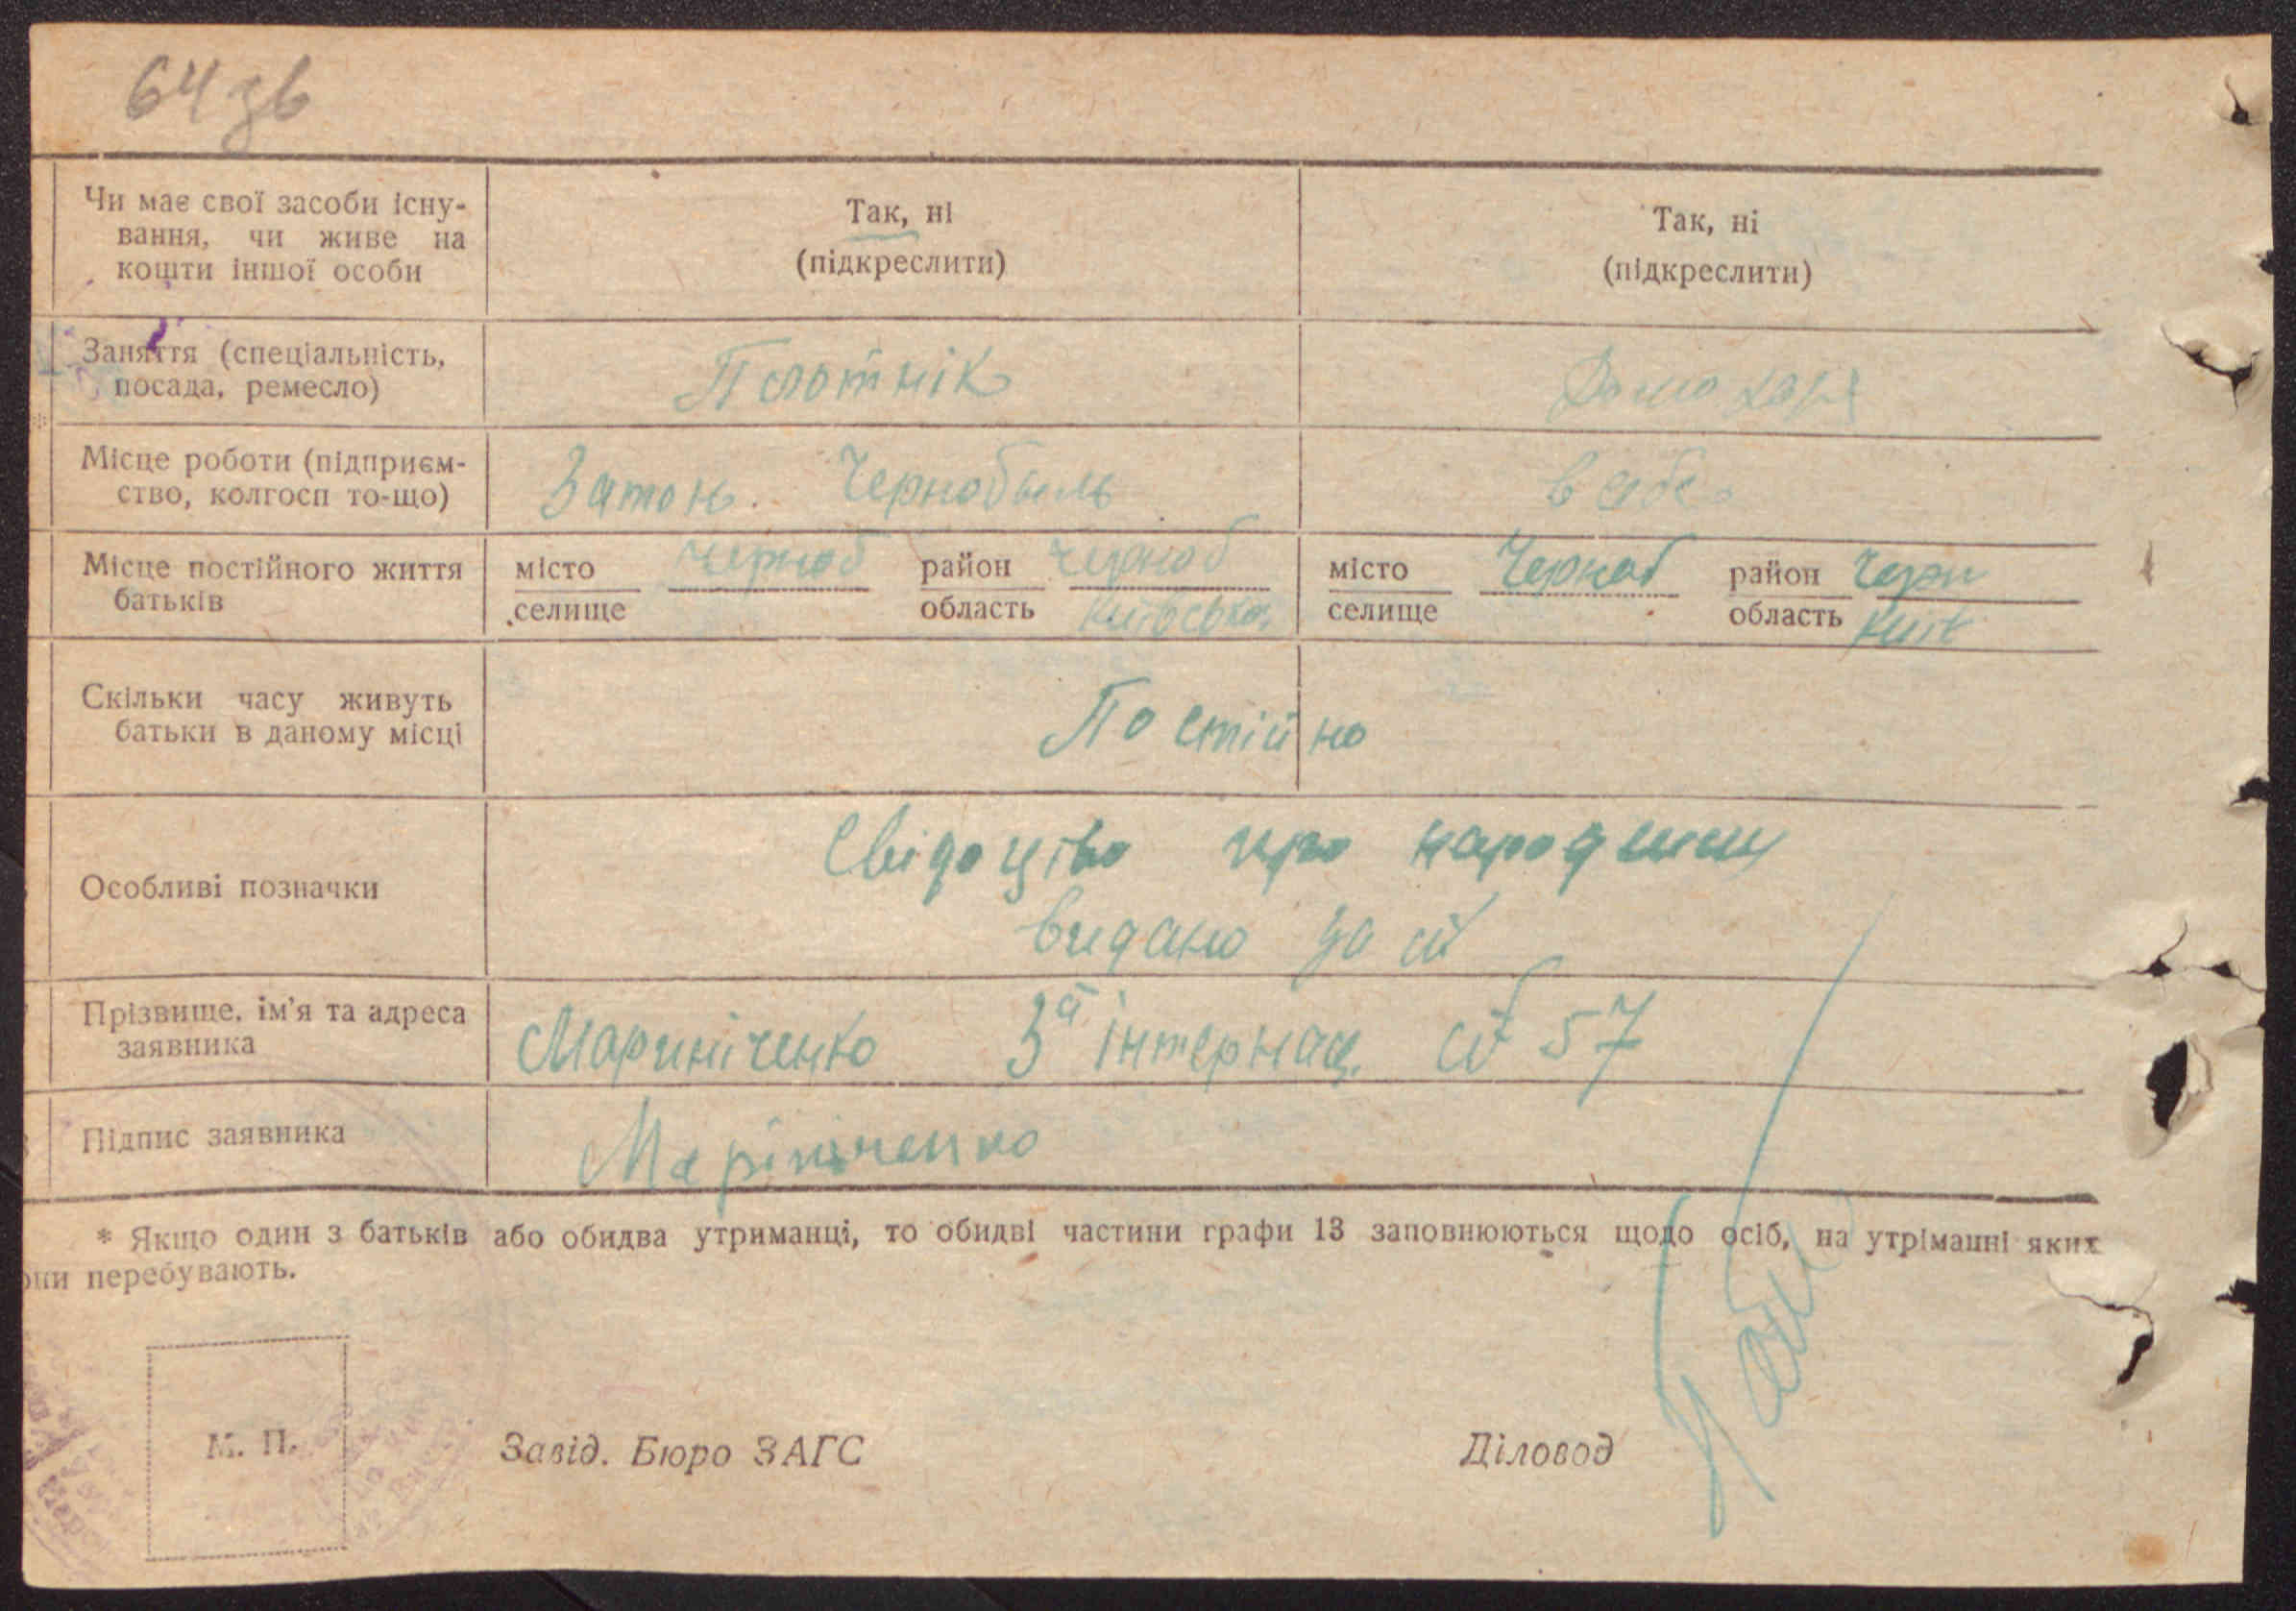 64 зв
Чи має свої засоби існу-
вання, чи живе на
кошти іншої особи
Так, ні
(підкреслити)
Так, ні
(підкреслити)
Заняття (спеціальність,
посада, ремесло)
Плотнік
Домохаз
Місце роботи (підприєм-
ство, колгосп то-що)
Затон. Чернобыль
в себе
Місце постійного життя
батьків
місто Черноб район Черноб
селище область Київська
місто Черноб район Черн
селище область Київ
Скільки часу живуть
батьки в даному місці
Постійно
Особливі позначки
Свідоцтво про народжен
видано
Прізвище, ім'я та адреса
заявника
Мариніченко 3й інтернац. 57
Підпис заявника
Марініченко
* Якщо один з батьків або обидва утриманці, то обидві частини графи 13 заповнюються щодо осіб, на утріманні яких
они перебувають.
М. П.
Завід. Бюро ЗАГС
Діловод